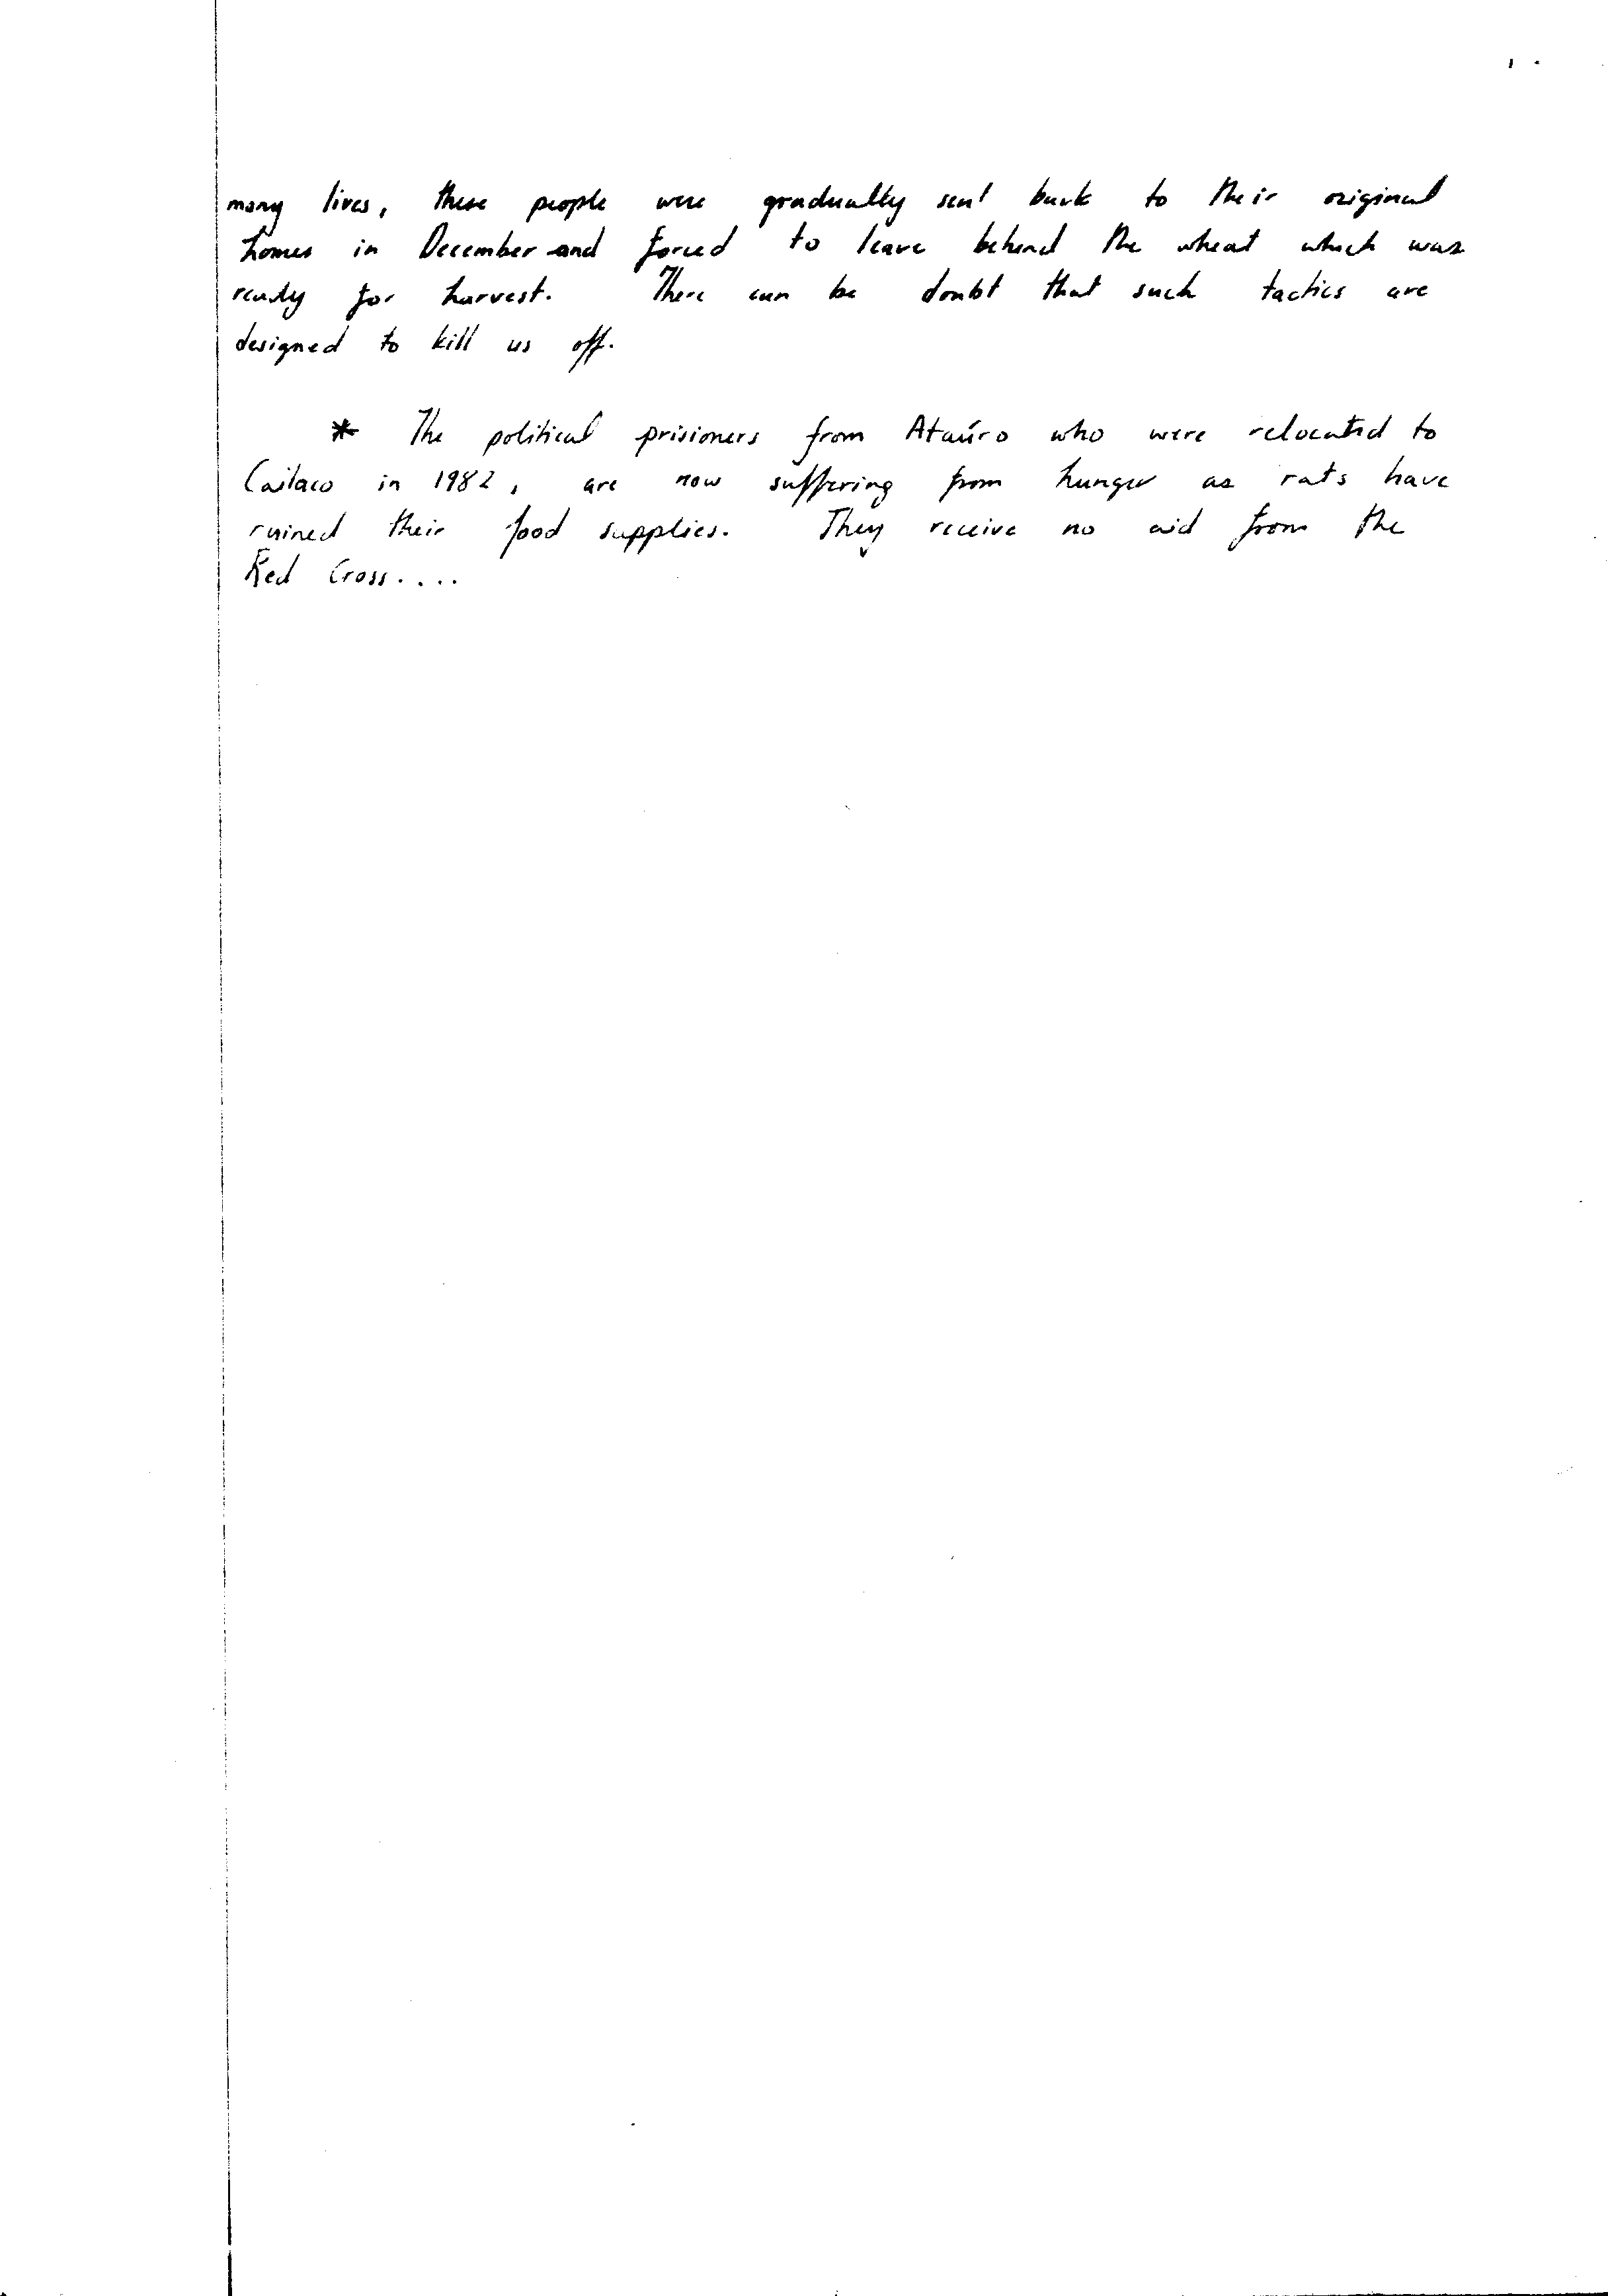 many lives, these people were gradually sent back to their original
homes in December and forced to leave behind the wheat which was
ready for harvest. There can be doubt that such tactics are
designed to kill us off.
* The political prisioners from Ataúro who were relocated to
Cailaco in 1982, are now suffering from hunger as rats have
ruined their food supplies. They receive no aid from the
Red Cross....